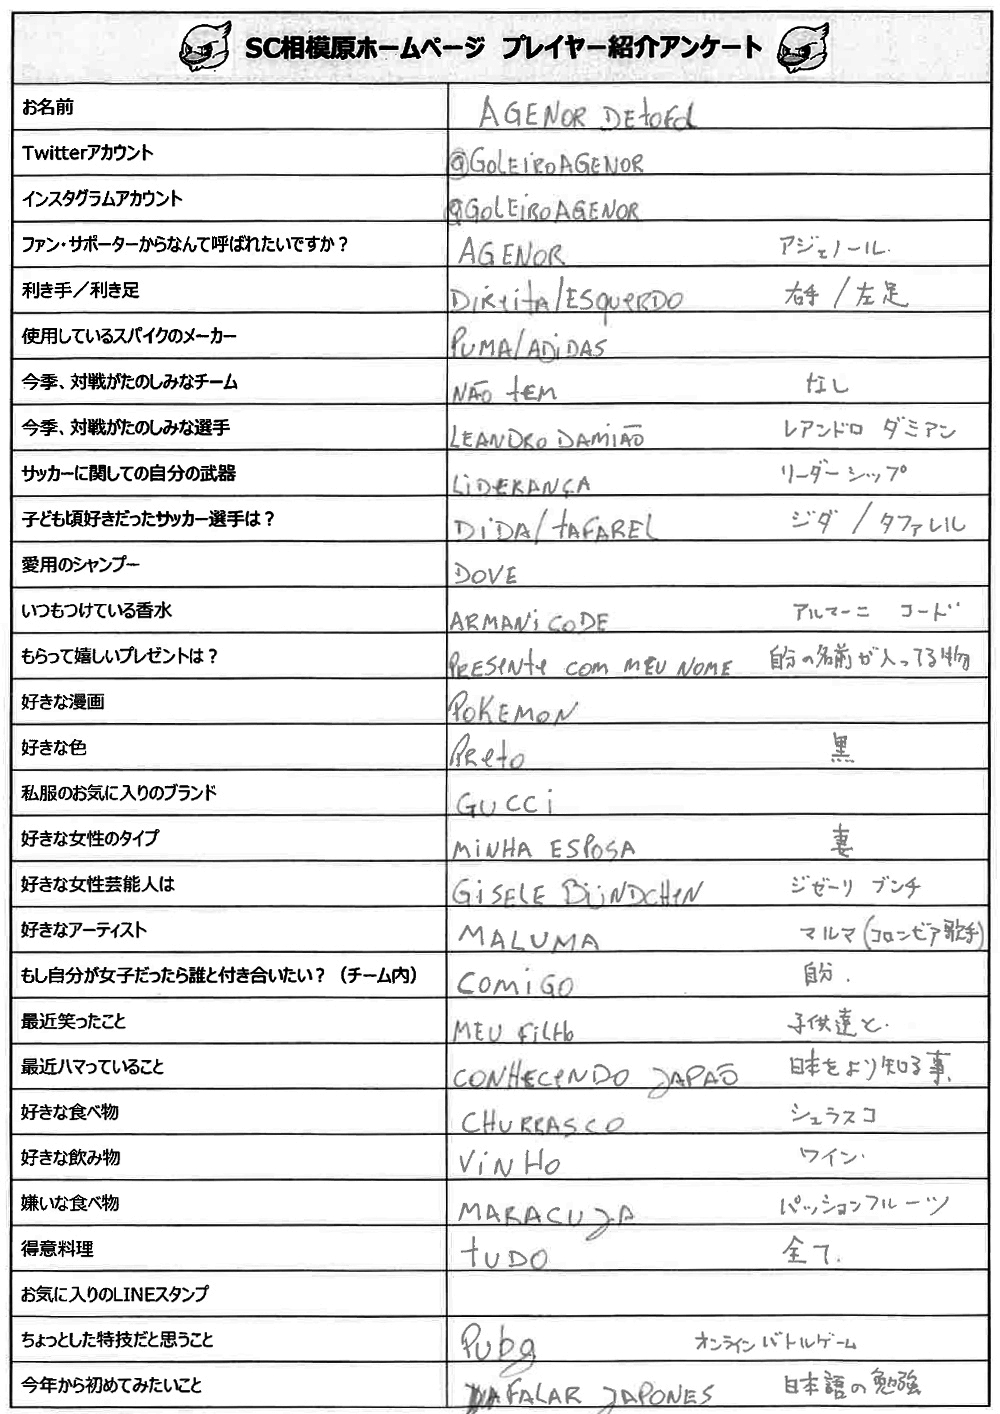 SC相模原ホームページ プレイヤー紹介アンケート
お名前 AGENOR DEtoFol
Twitterアカウント @GOLEIROAGENOR
インスタグラムアカウント @GOLEIROAGENOR
ファン・サポーターからなんて呼ばれたいですか？ AGENOR アジェノール.
利き手／利き足 DiReitA/ESQUERDO 右手 / 左足
使用しているスパイクのメーカー PUMA/ADiDAS
今季、対戦がたのしみなチーム NÃO tEM なし
今季、対戦がたのしみな選手 LEANDRO DAMIÃO レアンドロ ダミアン
サッカーに関しての自分の武器 LiDERANÇA リーダーシップ
子ども頃好きだったサッカー選手は？ DiDA/tAFAREL ジダ / タファレル
愛用のシャンプー DOVE
いつもつけている香水 ARMANi CODE アルマーニ コード
もらって嬉しいプレゼントは？ PRESENTE COM MEU NOME 自分の名前が入ってる物
好きな漫画 POKEMON
好きな色 PRetO 黒
私服のお気に入りのブランド GUCCi
好きな女性のタイプ MiNHA ESPOSA 妻
好きな女性芸能人は GiSELE BÜNDCHEN ジゼーリ ブンチ
好きなアーティスト MALUMA マルマ(コロンビア歌手)
もし自分が女子だったら誰と付き合いたい？（チーム内） COMiGO 自分.
最近笑ったこと MEU FiLHO 子供達と.
最近ハマっていること CONHECENDO JAPÃO 日本をより知る事.
好きな食べ物 CHURRASCO シュラスコ
好きな飲み物 ViNHO ワイン.
嫌いな食べ物 MARACUJA パッションフルーツ
得意料理 tUDO 全て.
お気に入りのLINEスタンプ
ちょっとした特技だと思うこと Pubg オンラインバトルゲーム
今年から初めてみたいこと FALAR JAPONES 日本語の勉強